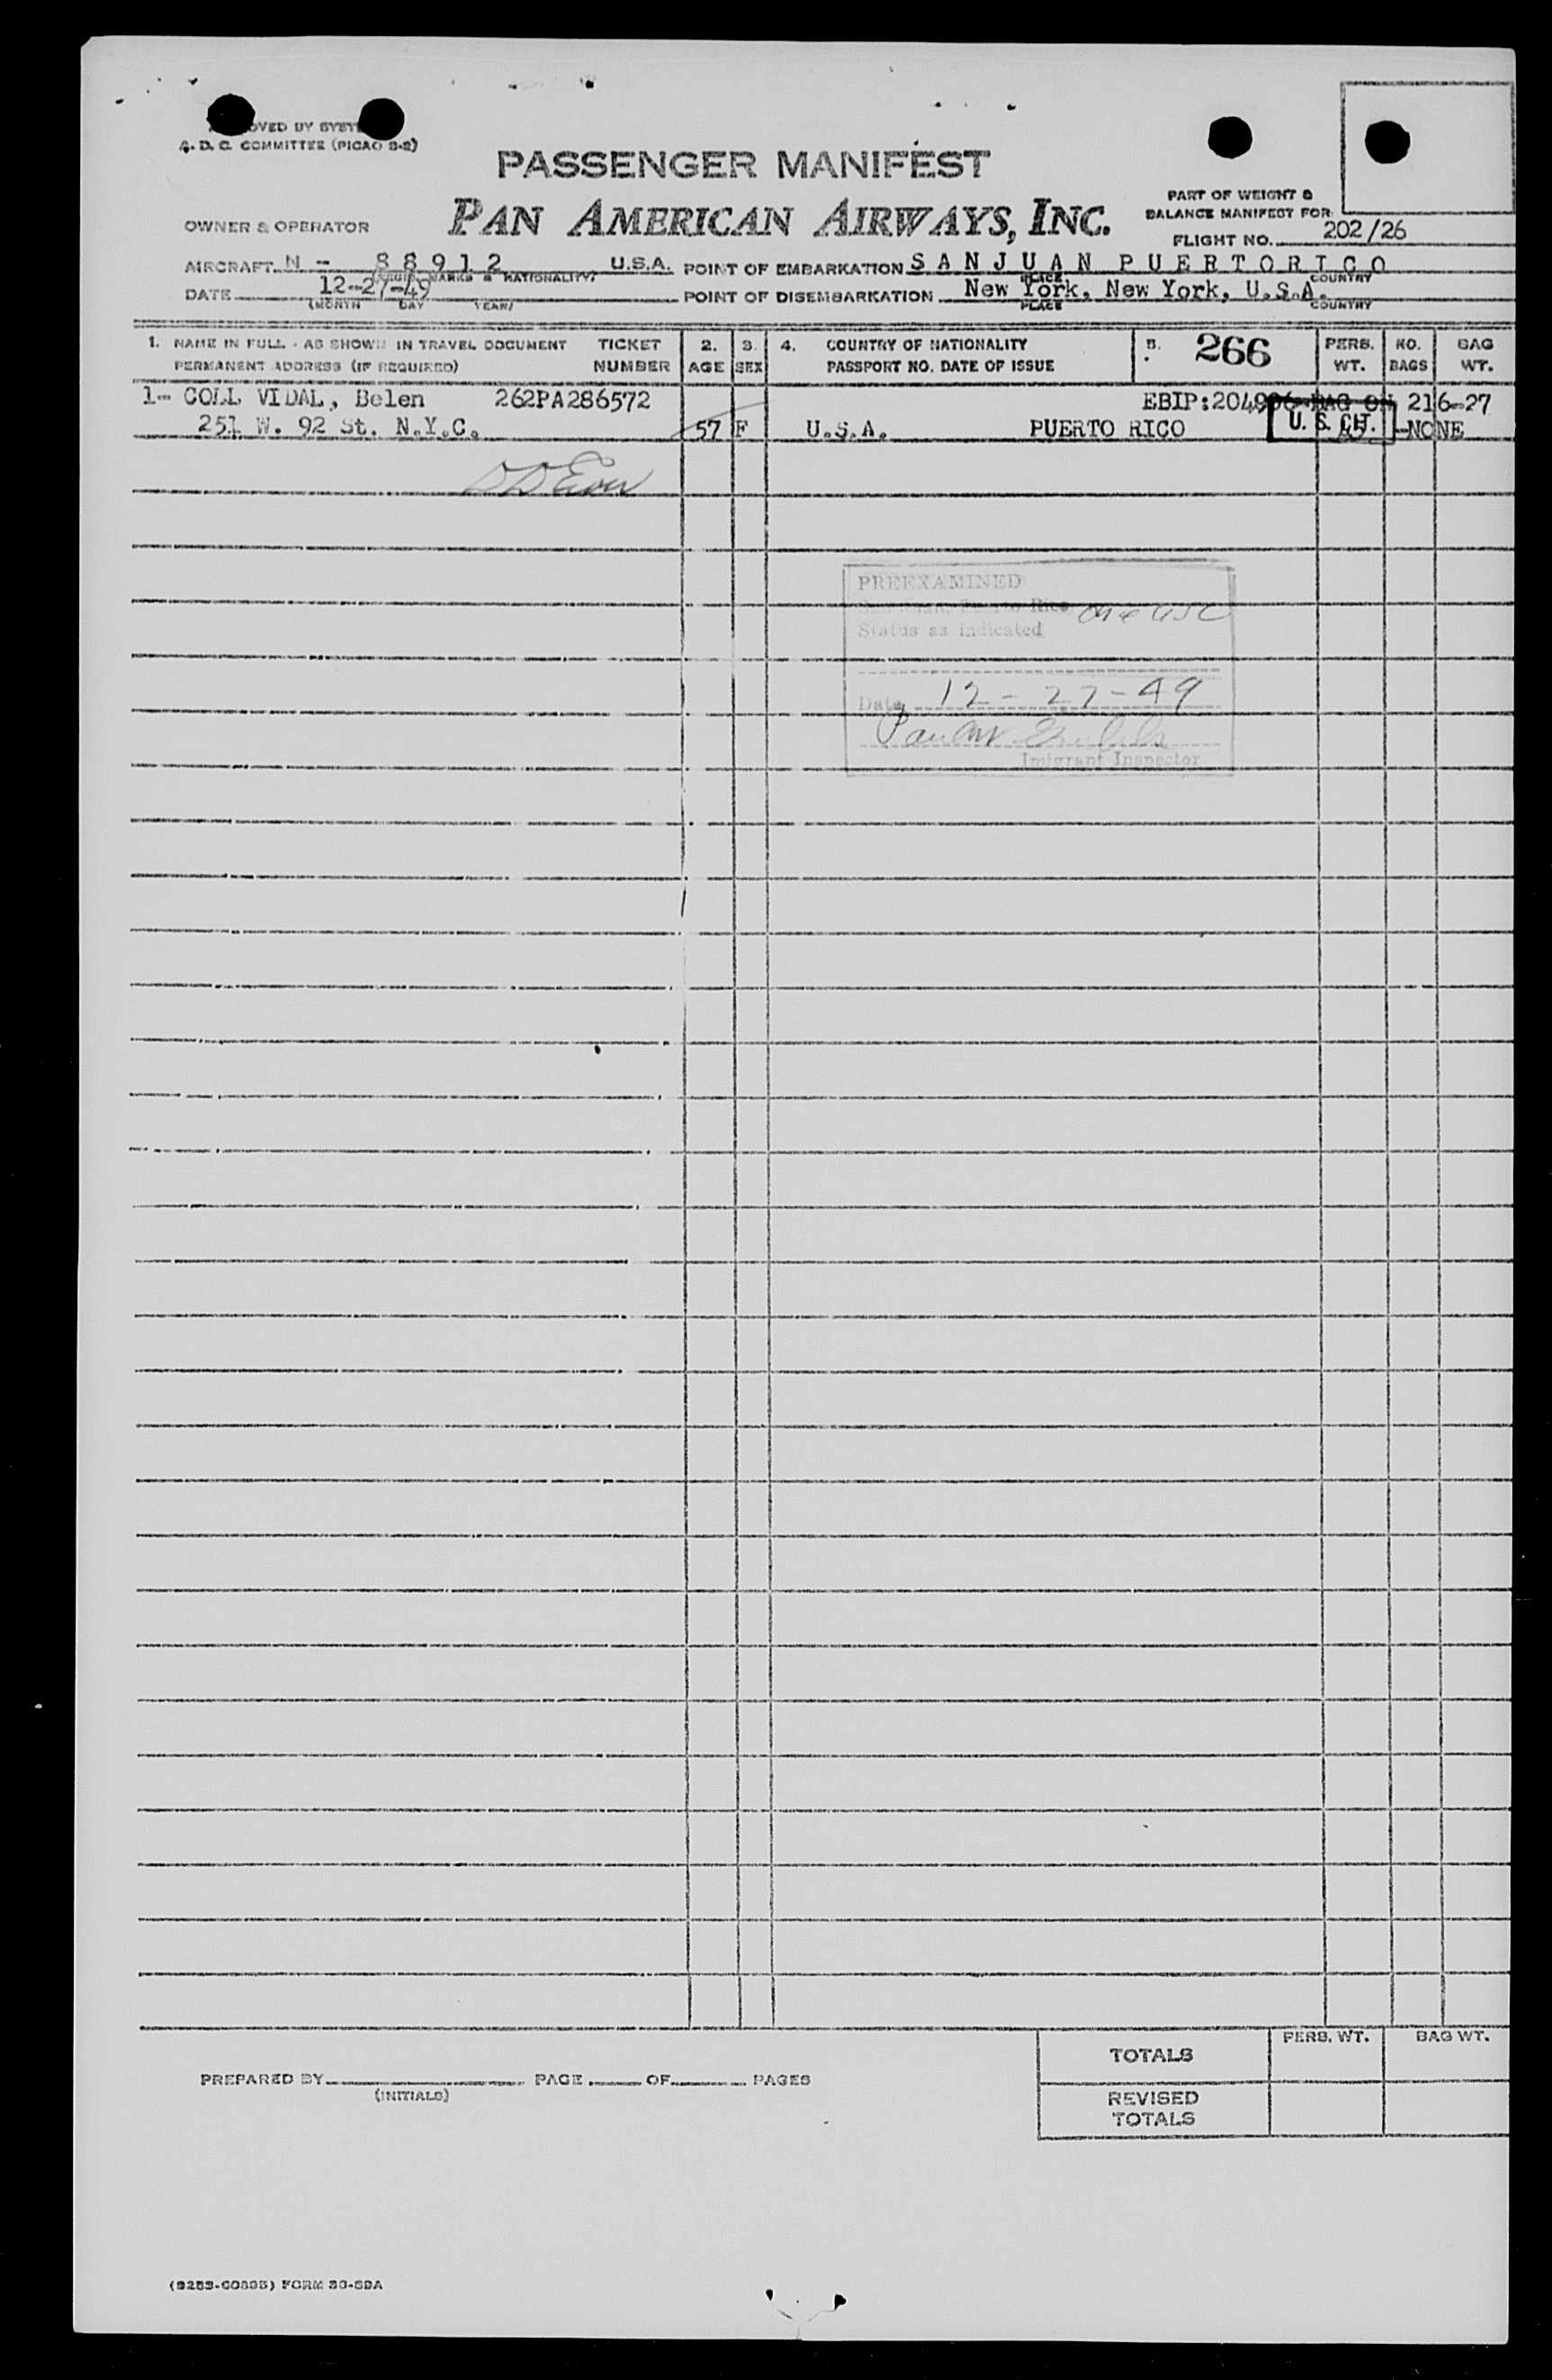 OVED BY SYSTE
A. D. C. COMMITTEE (PICAO 3-2)
PASSENGER MANIFEST
PAN AMERICAN AIRWAYS, INC.
PART OF WEIGHT &
BALANCE MANIFEST FOR
OWNER & OPERATOR
FLIGHT NO. 202/26
AIRCRAFT N - 88912 U.S.A. POINT OF EMBARKATION S A N J U A N P U E R T O R I C O
MARKS & NATIONALITY) PLACE COUNTRY
DATE 12-27-49 POINT OF DISEMBARKATION New York, New York, U.S.A.
(MONTH DAY YEAR) PLACE COUNTRY
1. NAME IN FULL - AS SHOWN IN TRAVEL DOCUMENT TICKET 2. 3. 4. COUNTRY OF NATIONALITY 5. 266 PERS. NO. BAG
PERMANENT ADDRESS (IF REQUIRED) NUMBER AGE SEX PASSPORT NO. DATE OF ISSUE WT. BAGS WT.
1- COLL VIDAL, Belen 262PA286572 EBIP:204906-BAG ON 216-27
251 W. 92 St. N.Y.C. 57 F U.S.A. PUERTO RICO U. S. CIT. -NONE
PREEXAMINED
San Juan, Puerto Rico one USC
Status as indicated
Date 12-27-49
Imigrant Inspector
TOTALS PERS. WT. BAG WT.
PREPARED BY PAGE OF PAGES
(INITIALS)
REVISED
TOTALS
FORM 30-SDA